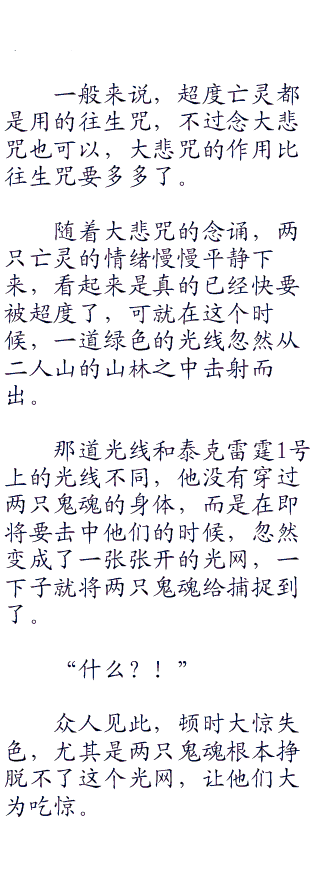 一般来说，超度亡灵都
是用的往生咒，不过念大悲
咒也可以，大悲咒的作用比
往生咒要多多了。
随着大悲咒的念诵，两
只亡灵的情绪慢慢平静下
来，看起来是真的已经快要
被超度了，可就在这个时
候，一道绿色的光线忽然从
二人山的山林之中击射而
出。
那道光线和泰克雷霆1号
上的光线不同，他没有穿过
两只鬼魂的身体，而是在即
将要击中他们的时候，忽然
变成了一张张开的光网，一
下子就将两只鬼魂给捕捉到
了。
“什么？！”
众人见此，顿时大惊失
色，尤其是两只鬼魂根本挣
脱不了这个光网，让他们大
为吃惊。